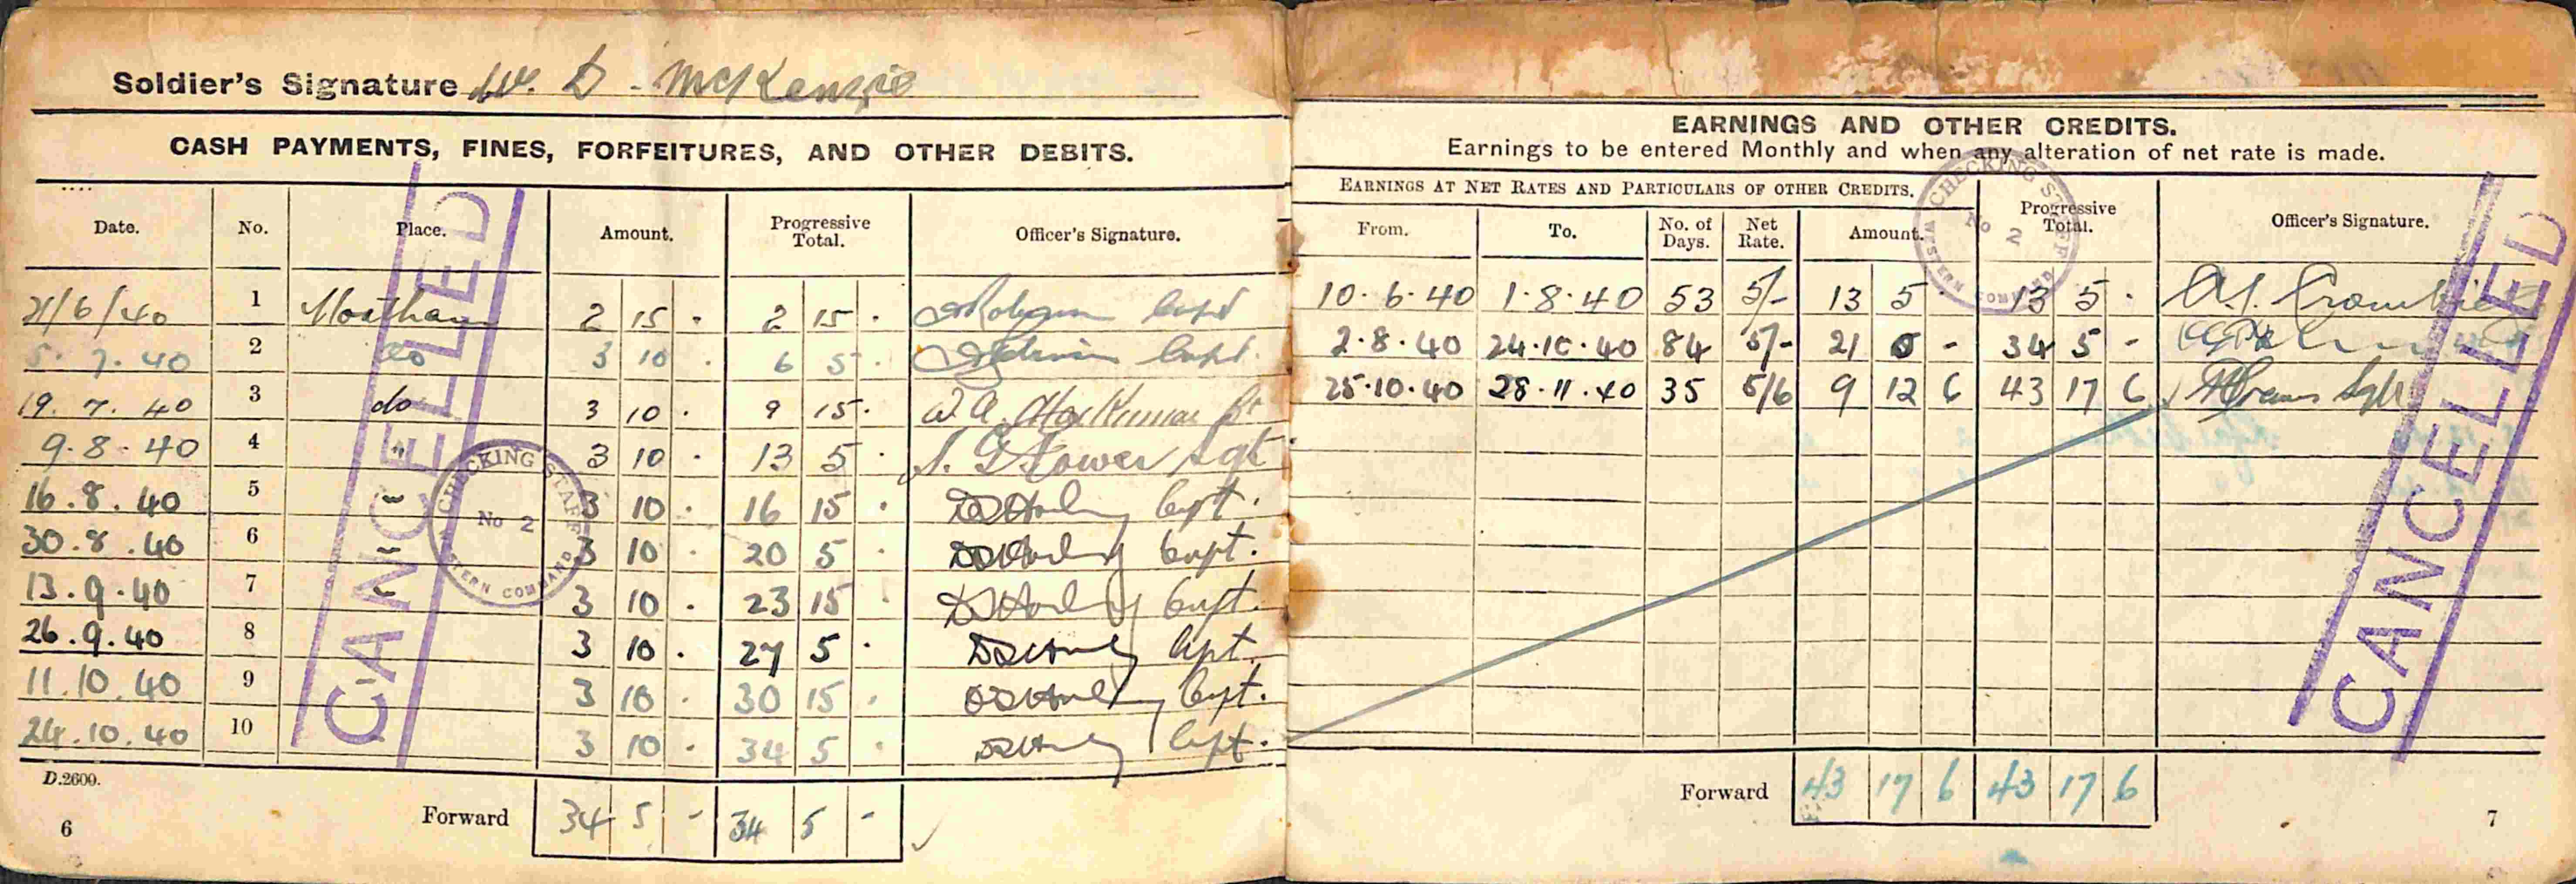 Soldier's Signature W. D. McKenzie
CASH PAYMENTS, FINES, FORFEITURES, AND OTHER DEBITS.
Date. No. Place. Amount. Progressive Total. Officer's Signature.
21/6/40 1 2 15 . 2 15 . Capt
5. 7. 40 2 do 3 10 . 6 5 . Capt.
19. 7. 40 3 do 3 10 . 9 15 .
9. 8. 40 4 " 3 10 . 13 5 . Sgt
16. 8. 40 5 " 3 10 . 16 15 . Capt.
30. 8. 40 6 " 3 10 . 20 5 . Capt.
13. 9. 40 7 " 3 10 . 23 15 . Capt.
26. 9. 40 8 3 10 . 27 5 . Capt.
11. 10. 40 9 3 10 . 30 15 . Capt.
24. 10. 40 10 3 10 . 34 5 . Capt.
D.2600.
Forward 34 5 - 34 5 -
6
CANCELLED
CHECKING STAFF
No 2
WESTERN COMMAND
EARNINGS AND OTHER CREDITS.
Earnings to be entered Monthly and when any alteration of net rate is made.
EARNINGS AT NET RATES AND PARTICULARS OF OTHER CREDITS.
From. To. No. of Days. Net Rate. Amount. Progressive Total. Officer's Signature.
10. 6. 40 1. 8. 40 53 5/- 13 5 . 13 5 .
2. 8. 40 24. 10. 40 84 5/- 21 5 - 34 5 -
25. 10. 40 28. 11. 40 35 5/6 9 12 6 43 17 6
Forward 43 17 6 43 17 6
7
CHECKING STAFF
No 2
WESTERN COMMAND
CANCELLED